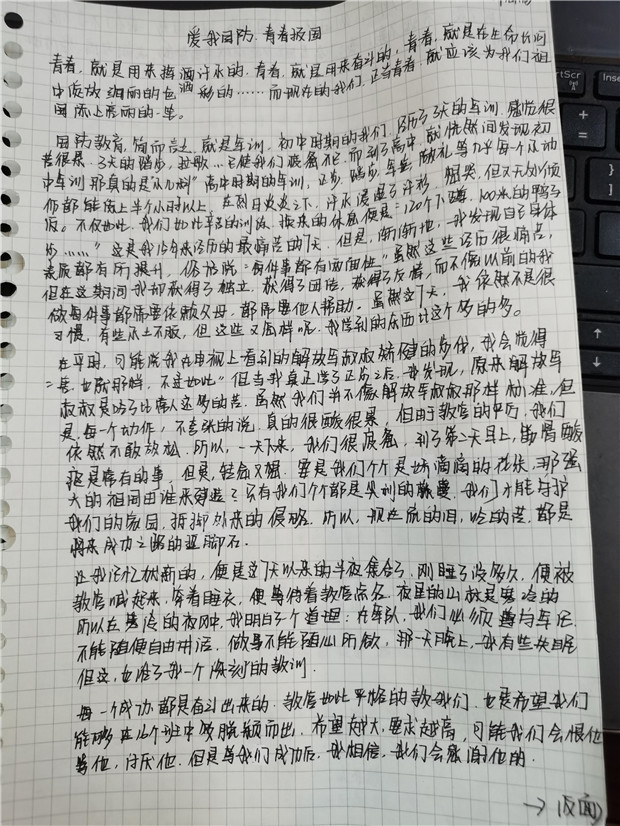 爱我国防.青春报国
青春，就是用来挥洒汗水的.青春，就是用来奋斗的，青春，就是在生命长河
中绽放绚丽的色彩的……而现在的我们.正当青春，就应该为我们祖
国添上亮丽的一笔。
国防教育，简而言之，就是军训，初中时期的我们，经历了3天的军训，感觉很
苦很累，3天的踏步，拉歌...已使我们疲惫不已，而到了高中，就恍然间发现初
中军训那真的是"小儿科" 高中时期的军训，正步，踏步，军姿，敬礼等几乎每个动
作都能练上半个小时以上，在烈日炎炎之下，汗水浸湿了汗衫，
饭。不仅如此，我们如此辛苦的训练，换来的休息便是：120个下蹲，100米的鸭子
步……" 这是我16年来经历的最痛苦的7天，但是，渐渐地，我发现自己身体
素质都有所提升，俗话说："每件事都有两面性" 虽然这些经历很痛苦，
但在这期间我却获得了独立，获得了团结，获得了友情，而不像以前的我
做每件事都需要依赖父母，都需要他人帮助，虽然这7天，我依然不是很
习惯，有些水土不服，但这些又怎样呢，我学到的东西比这个多的多。
在平时，可能说我在电视上看到的解放军叔叔矫健的步伐，我会觉得
"哇，也就那样，不过如此" 但当我真正学了正步之后，我发现，原来解放军
叔叔是吃了比常人还多的苦，虽然我们并不像解放军叔叔那样标准，但
是，每一个动作，不夸张的说，真的很酸很累，但由于教官的严厉，我们
依然不敢放松，所以，一天下来，我们很疲惫，到了第二天早上，肌肉酸
痛是常有的事，但是，轻言又想，要是我们个个是娇滴滴的花朵，那强
大的祖国由谁来铸造？只有我们个个都是尖利的，我们才能守护
我们的家园，抵御外来的侵略，所以，现在流的泪，吃的苦，都是
将来成功之路的垫脚石.
让我记忆犹新的，便是这7天以来的半夜集合了，刚睡了没多久，便被
教官喊起来，穿着睡衣，便等待着教官点名，夜里的山就是寒冷的
所以在寒凉的夜风中，我明白了个道理：在军队，我们必须遵守军纪，
不能随便自由讲话，做事不能随心所欲，那一天晚上，我有些失眠
但这，也给了我一个深刻的教训.
每一个成功都是奋斗出来的，教官如此严格的教我们，也是希望我们
能够在16个班中够脱颖而出，希望越大，要求越高，可能我们会恨他
骂他，讨厌他，但是等我们成功后，我相信，我们会感谢他的.
→ 反面)
PrtScr
Inse